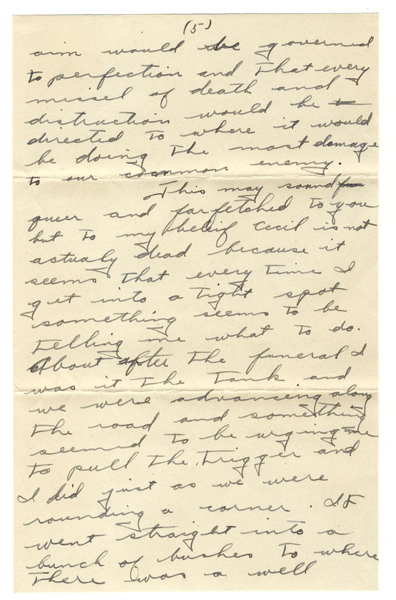 (5)
aim would be governed
to perfection and that every
missel of death and
distruction would be
directed to where it would
be doing the most damage
to our common enemy.
This may sound
queer and farfetched to you
but to my belief Cecil is not
actualy dead because it
seems that every time I
get into a tight spot
something seems to be
telling me what to do.
About after the funeral I
was it the tank and
we were advancing along
the road and something
seemed to be urging me
to pull the trigger and
I did just as we were
rounding a corner. It
went straight into a
bunch of bushes to where
there was a well